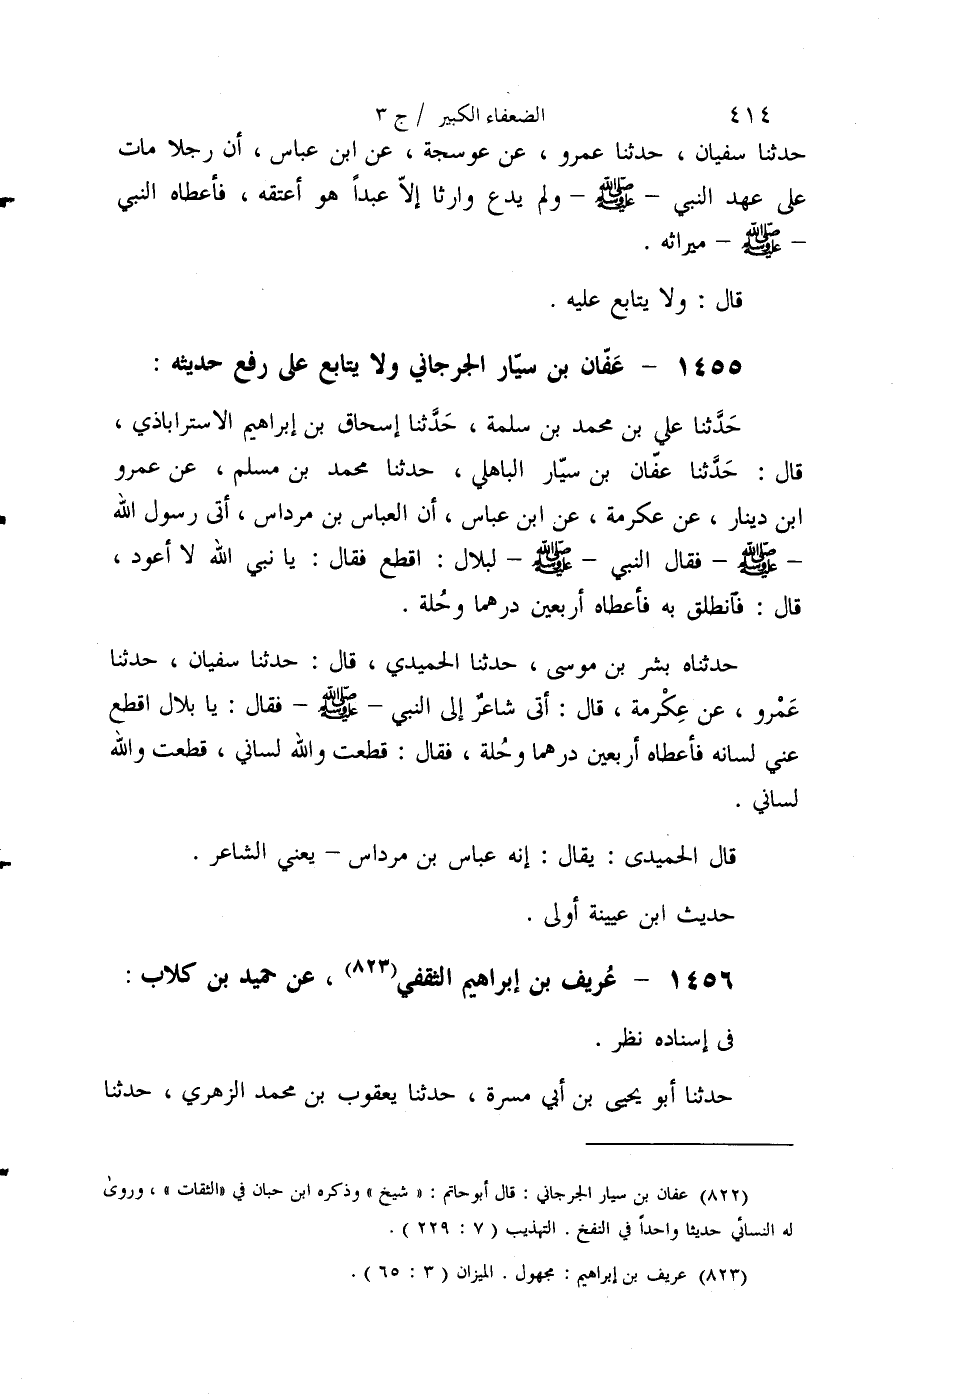 ٤١٤ الضعفاء الكبير / ج ٣
حدثنا سفيان ، حدثنا عمرو ، عن عوسجة ، عن ابن عباس ، أن رجلا مات
على عهد النبي – ﷺ – ولم يدع وارثا إلاّ عبداً هو أعتقه ، فأعطاه النبي
– ﷺ – ميراثه .
قال : ولا يتابع عليه .
١٤٥٥ – عَفّان بن سيّار الجرجاني ولا يتابع على رفع حديثه :
حَدَّثنا علي بن محمد بن سلمة ، حَدَّثنا إسحاق بن إبراهيم الاستراباذي ،
قال : حَدَّثنا عفّان بن سيّار الباهلي ، حدثنا محمد بن مسلم ، عن عمرو
ابن دينار ، عن عكرمة ، عن ابن عباس ، أن العباس بن مرداس ، أتى رسول الله
– ﷺ – فقال النبي – ﷺ – لبلال : اقطع فقال : يا نبي الله لا أعود ،
قال : فآنطلق به فأعطاه أربعين درهما وحُلة .
حدثناه بشر بن موسى ، حدثنا الحميدي ، قال : حدثنا سفيان ، حدثنا
عَمْرو ، عن عِكْرمة ، قال : أتى شاعرٌ إلى النبي – ﷺ – فقال : يا بلال اقطع
عني لسانه فأعطاه أربعين درهما وحُلة ، فقال : قطعت والله لساني ، قطعت والله
لساني .
قال الحميدى : يقال : إنه عباس بن مرداس – يعني الشاعر .
حديث ابن عيينة أولى .
١٤٥٦ – عُريف بن إبراهيم الثقفي(٨٢٣) ، عن حميد بن كلاب :
فى إسناده نظر .
حدثنا أبو يحيى بن أبي مسرة ، حدثنا يعقوب بن محمد الزهري ، حدثنا
(٨٢٢) عفان بن سيار الجرجاني : قال أبو حاتم : « شيخ » وذكره ابن حبان في «الثقات » ، وروىٰ
له النسائي حديثا واحداً في النفخ . التهذيب ( ٧ : ٢٢٩ ) .
(٨٢٣) عريف بن إبراهيم : مجهول . الميزان ( ٣ : ٦٥ ) .